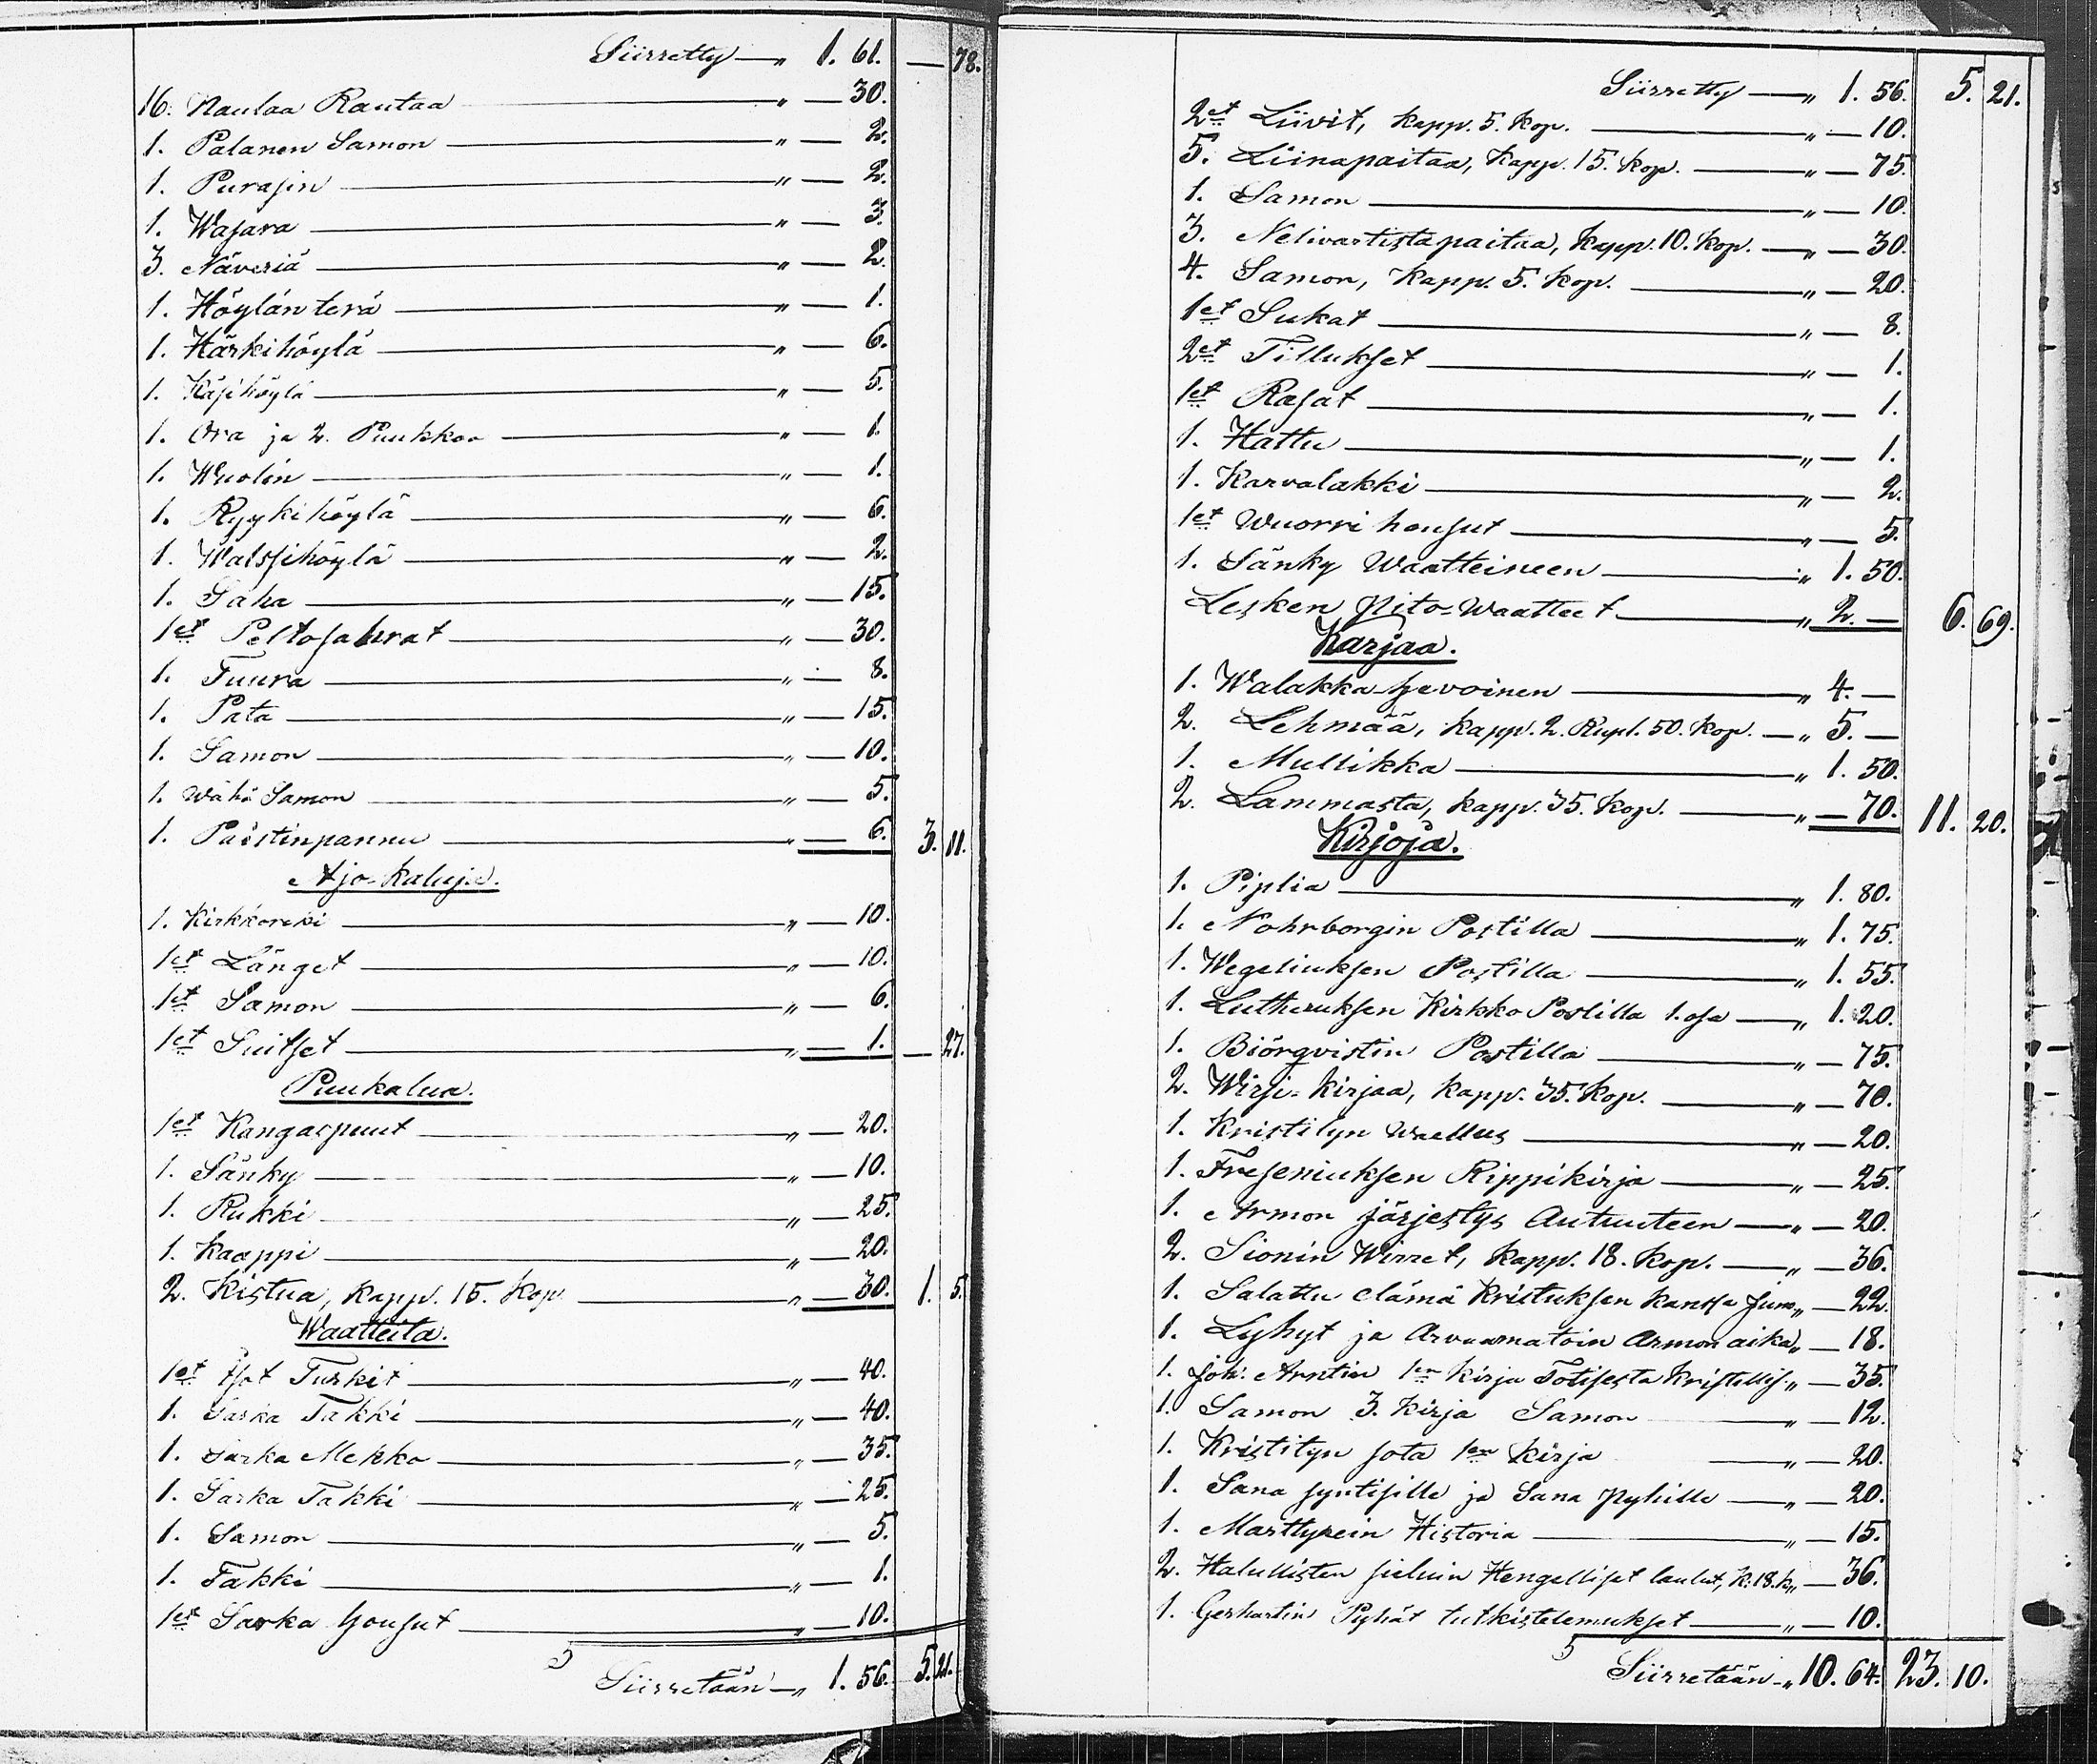 Siirretty — " 1. 61. — 78.
16. Naulaa Rautaa — " — 30.
1. Palanen Samon — " — 2.
1. Purasin — " — 2.
1. Wasara — " — 3.
3. Näveriä — " — 2.
1. Höylän terä — " — 1.
1. Härkihöylä — " — 6.
1. Käsihöylä — " — 5.
1. Ora ja 2. Puukkoa — " — 1.
1. Wuolin — " — 1.
1. Ryykihöylä — " — 6.
1. Walssihöylä — " — 2.
1. Saha — " — 15.
1et Peltosahrat — " — 30.
1. Tuura — " — 8.
1. Pata — " — 15.
1. Samon — " — 10.
1. Wähä Samon — " — 5.
1. Paistinpannu — " — 6. 3. 11.
Ajo-kaluja.
1. Kirkkoreki — " — 10.
1et Länget — " — 10.
1et Samon — " — 6.
1et Suitset — " — 1. — 27.
Puukalua.
1et Kangaspuut — " — 20.
1. Sänky — " — 10.
1. Rukki — " — 25.
1. Kaappi — " — 20.
2. Kistua, kapp. 15. Kop. — " — 30. 1. 5.
Waatteita.
1et Turkit — " — 40.
1. Sarka Takki — " — 40.
1. Sarka Mekko — " — 35.
1. Sarka Takki — " — 25.
1. Samon — " — 5.
1. Takki — " — 1.
1et Sarka housut — " — 10.
Siirretään — " 1. 56. 5. 21.
Siirretty — " 1. 56. 5. 21.
2et Liivit, kapp. 5. kop. — " — 10.
5. Liinapaitaa, kapp. 15. kop. — " — 75.
1. Samon — " — 10.
3. Nelivartistapaitaa, kapp. 10. kop. — " — 30.
4. Samon, kapp. 5. kop. — " — 20.
1et Sukat — " — 8.
2et Tillukset — " — 1.
1et Rasat — " — 1.
1. Hattu — " — 1.
1. Karvalakki — " — 2.
1et Wuorri housut — " — 5.
1. Sänky Waatteineen — " 1. 50.
Lesken pito-Waatteet — " 2. — 6. 69.
Karjaa.
1. Walakka-hevoinen — " 4. —
2. Lehmää, kapp. 2. Rupl. 50. kop. — " 5. —
1. Mullikka — " 1. 50.
2. Lammasta, kapp. 35. kop. — " — 70. 11. 20.
Kirjoja.
1. Piplia — " 1. 80.
1. Nohrborgin Postilla — " 1. 75.
1. Wegeliuksen Postilla — " 1. 55.
1. Lutheruksen Kirkko Postilla 1. osa — " 1. 20.
1. Biörqvistin Postilla — " — 75.
2. Wirsi-kirjaa, kapp. 35. kop. — " — 70.
1. Kristityn Waellus — " — 20.
1. Freseniuksen Rippikirja — " — 25.
1. Armon järjestys Autuuteen — " — 20.
2. Sionin Wirret, kapp. 18. kop. — " — 36.
1. Salattu elämä Kristuksen kanssa Jum. " — 22.
1. Lyhyt ja Arvaamatoin Armon aika " — 18.
1. Joh: Arntin 1en kirja Totisesta kristillis. " — 35.
1. Samon 3. kirja Samon " — 12.
1. Kristityn sota 1en kirja — " — 20.
1. Sana syntisille ja Sana pyhille — " — 20.
1. Marttyrein Historia — " — 15.
2. Halullisten sieluin Hengelliset laulut, k. 18. k. " — 36.
1. Gerhartin Pyhät tutkistelemukset — " — 10.
Siirretään — " 10. 64. 23. 10.